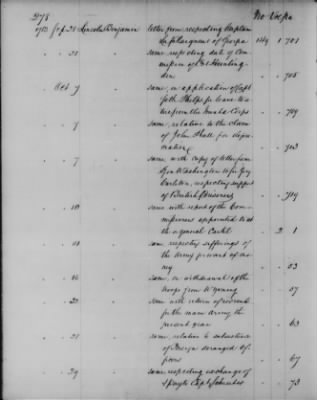 278
No Vol pa
1782 Sep 25 Lincoln Benjamin letter from, respecting Captain
La fallergment of Georgia 149 1 701
25 same, respecting date of Com
mission of Lt Hunting
don - - 705
Oct 7 same, on application of Capt
Seth Phelps for leave to re
tire from the Invalid Corps - - 749
7 same, relative to the claim
of John Hall for depre
ciation - - 753
7 same, with copy of letter from
Gen Washington to Sir Guy
Carleton, respecting support
of British Prisoners - - 759
10 same with report of the Com
missioners appointed to set
tle a general Cartel - 2 1
same, respecting sufferings of
the Army for want of mo
ney - - 53
same, on withdrawal of the
troops from Wyoming - - 57
22 same with return of
for the main Army the
present year - - 63
same, relative to subsistence
of Foreign deranged of
ficers - - 67
29 same respecting exchange of
Capt Schreiber - - 73